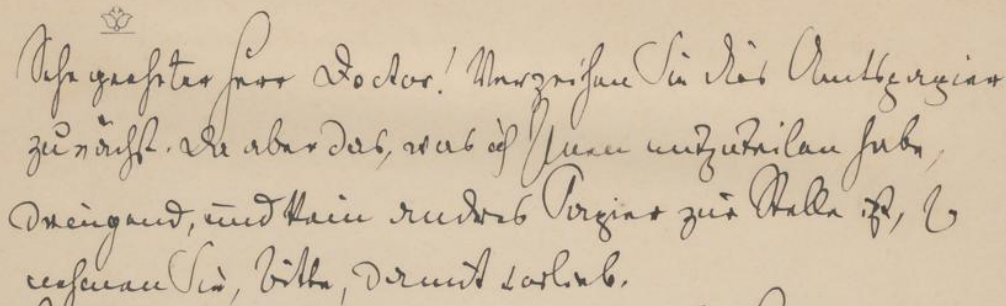 Sehr geehrter Herr Doctor! Verzeihen Sie dies Amtspapier
zunächst. Da aber das, was ich Ihnen mitzuteilen habe,
dringend, und kein andres Papier zur Stelle ist, so
nehmen Sie, bitte, damit vorlieb.